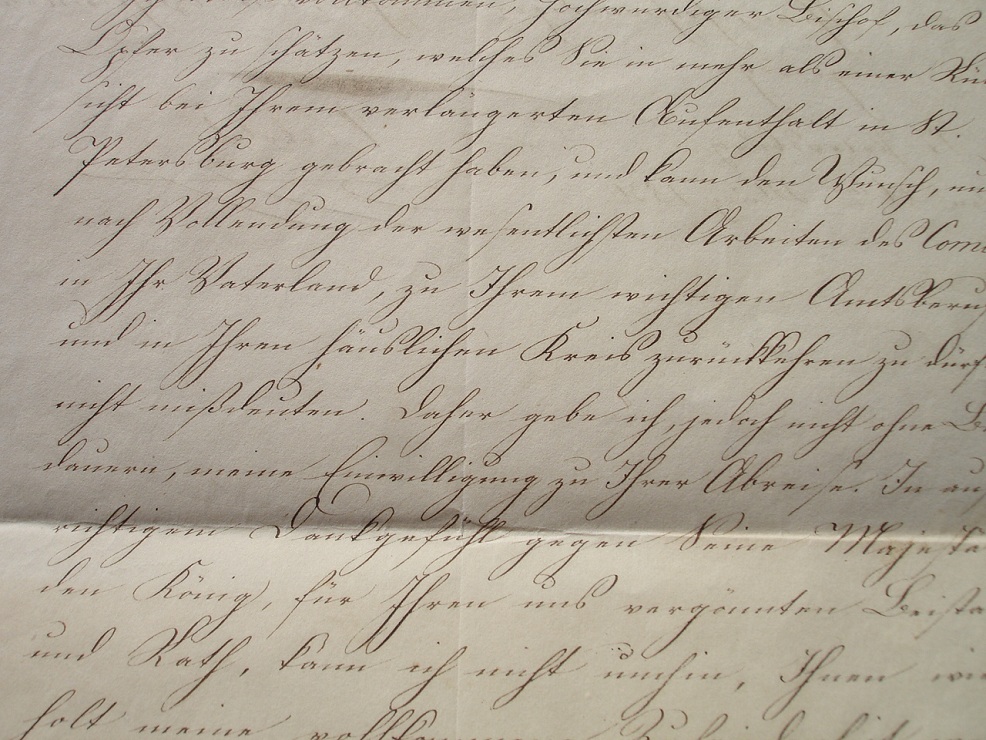 vollkommen, hochwürdiger Bischof, das
Opfer zu schätzen, welches Sie in mehr als einer Rük
sicht bei Ihrem verlängerten Aufenthalt in St.
Petersburg gebracht haben, und kann den Wunsch, nu
nach Vollendung der wesentlichsten Arbeiten des Comi
in Ihr Vaterland, zu Ihrem wichtigen Amtsberuf
und in Ihren häuslichen Kreis zurückkehren zu dürf
nicht mißdeuten. Daher gebe ich, jedoch nicht ohne Be
dauern, meine Einwilligung zu Ihrer Abreise. In auf
richtigem Dankgefühl gegen Seine Majestä
den König, für Ihren uns vergönnten Beista
und Rath, kann ich nicht umhin, Ihnen wie
holt meine